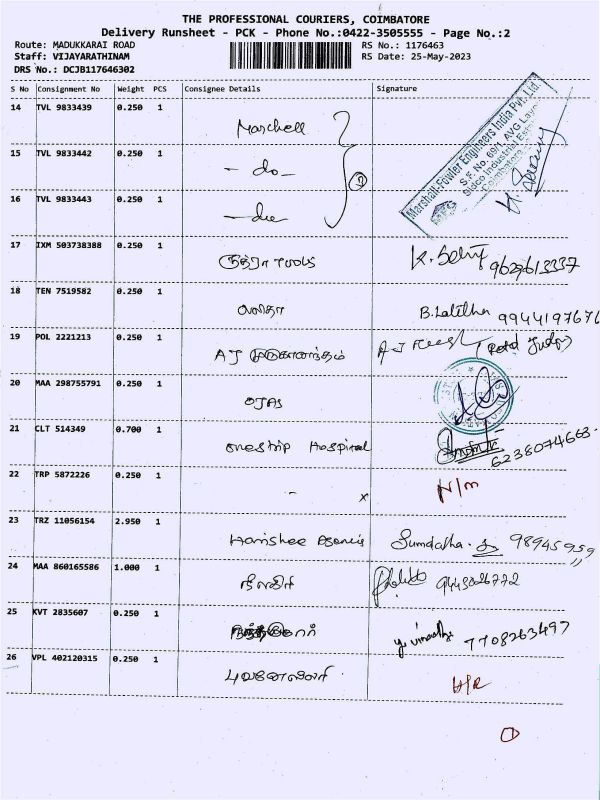 THE PROFESSIONAL COURIERS, COIMBATORE
Delivery Runsheet - PCK - Phone No.:0422-3505555 - Page No.:2
Route: MADUKKARAI ROAD RS No.: 1176463
Staff: VIJAYARATHINAM RS Date: 25-May-2023
DRS No.: DCJB117646302
S No Consignment No Weight PCS Consignee Details Signature
14 TVL 9833439 0.250 1
Marshall-Fowler Engineers India Pvt. Ltd.
S.F. No. 69/1, AVG Layout
15 TVL 9833442 0.250 1
- do -
16 TVL 9833443 0.250 1
17 IXM 503738388 0.250 1
9629613337
18 TEN 7519582 0.250 1
லலிதா B. Lalitha 9944197676
19 POL 2221213 0.250 1
AJ
20 MAA 298755791 0.250 1
OJAS
21 CLT 514349 0.700 1
Hospital 6238074663
22 TRP 5872226 0.250 1
- x N/m
23 TRZ 11056154 2.950 1
98945959
24 MAA 860165586 1.000 1
9443026772
25 KVT 2835607 0.250 1
7708263497
26 VPL 402120315 0.250 1
H/R
1